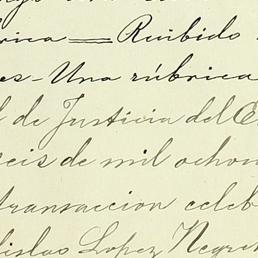 rica = Recibido
es - Una rúbrica
l de Justicia del E
seis de mil ochoc
transaccion celeb
dislao Lopez Negret